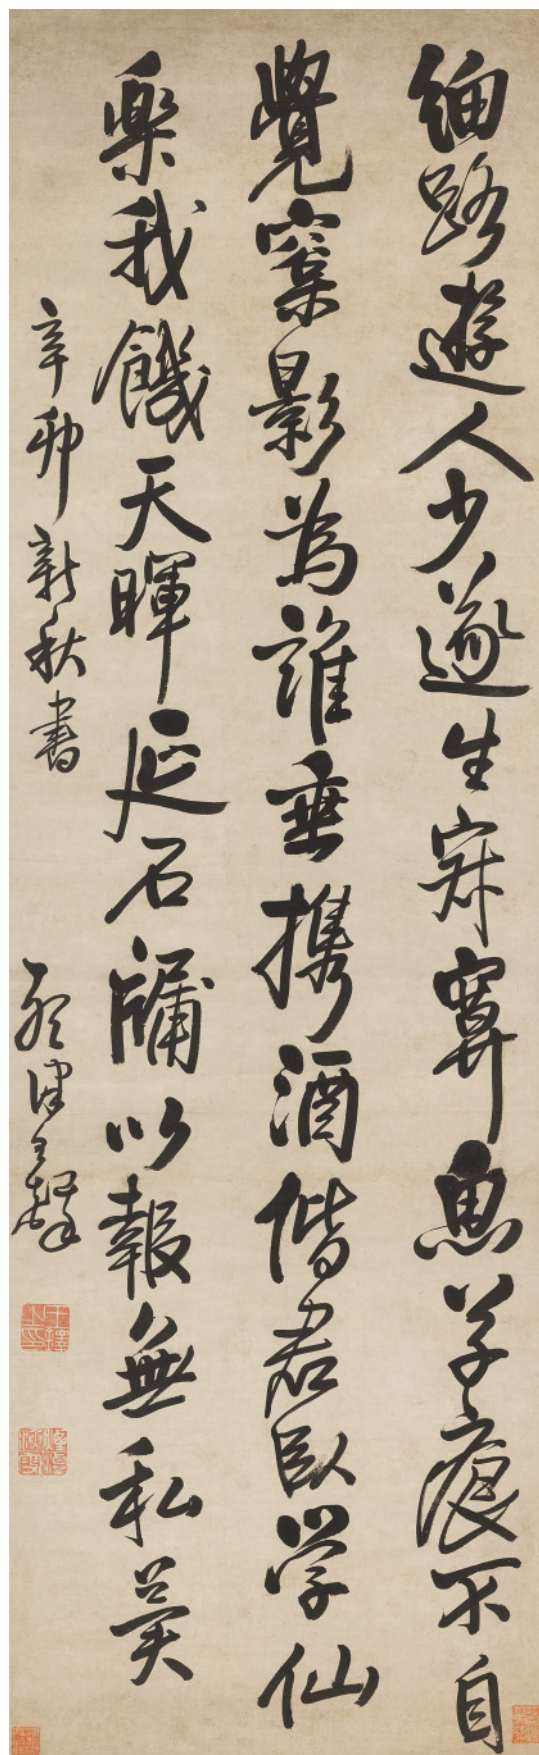 細路遊人少遂生寂算魚草痕不自
覺窠影為誰垂攜酒偕君臥學仙
樂我饑天暉延石牖以報無私葵
辛卯新秋書
王鐸